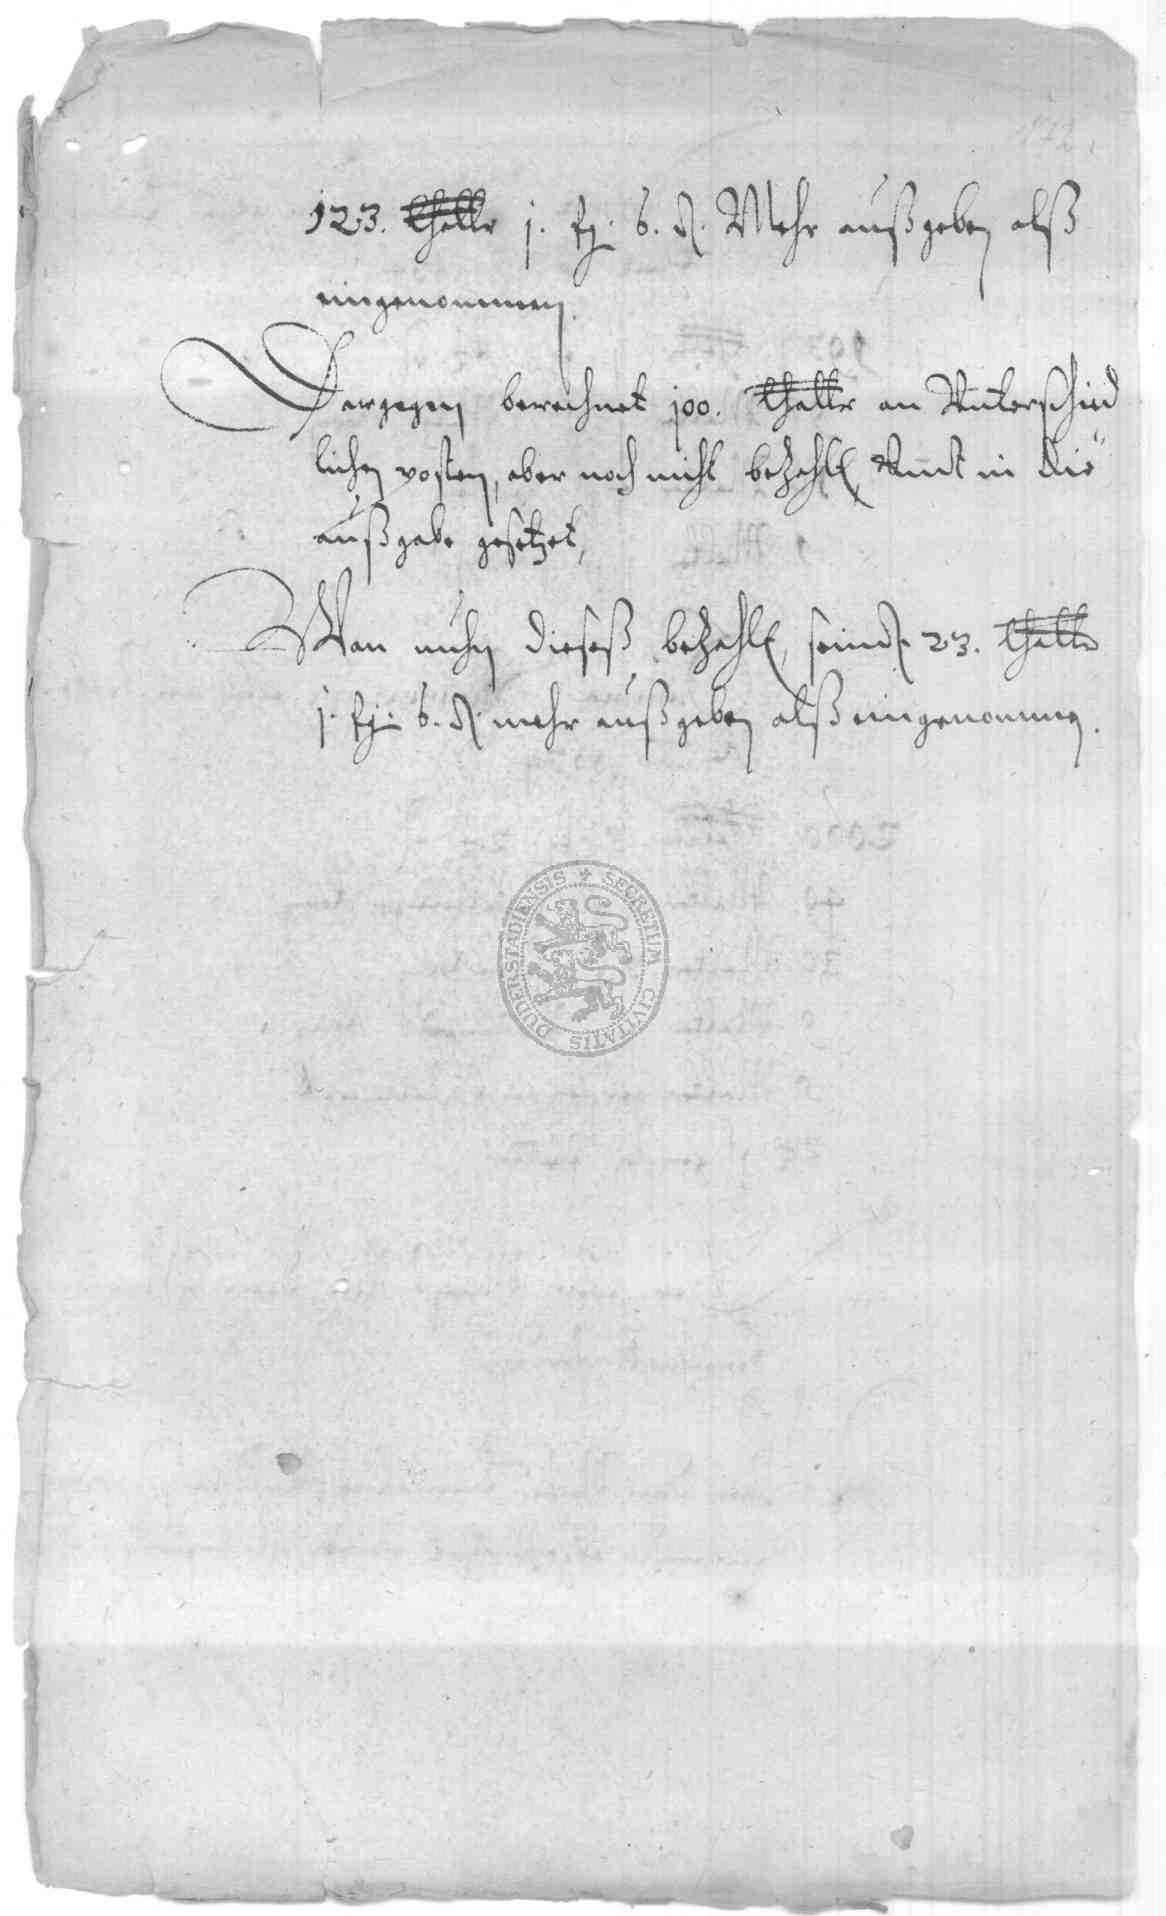 123. thaller j. ßj. 6. d. Mehr außgeben alß
eingenommen.
Dargegen berechnet j00. thaller an Unterschied
lichen posten, aber noch nicht bezahlt, Undt in die
außgabe gesetzet,
Wan nuhn dieseß bezahlt, seindt 23. thaller
j. ßj. 6. d. mehr außgeben alß eingenommen.
DUDERSTADIENSIS + SECRETUM CIVITATIS